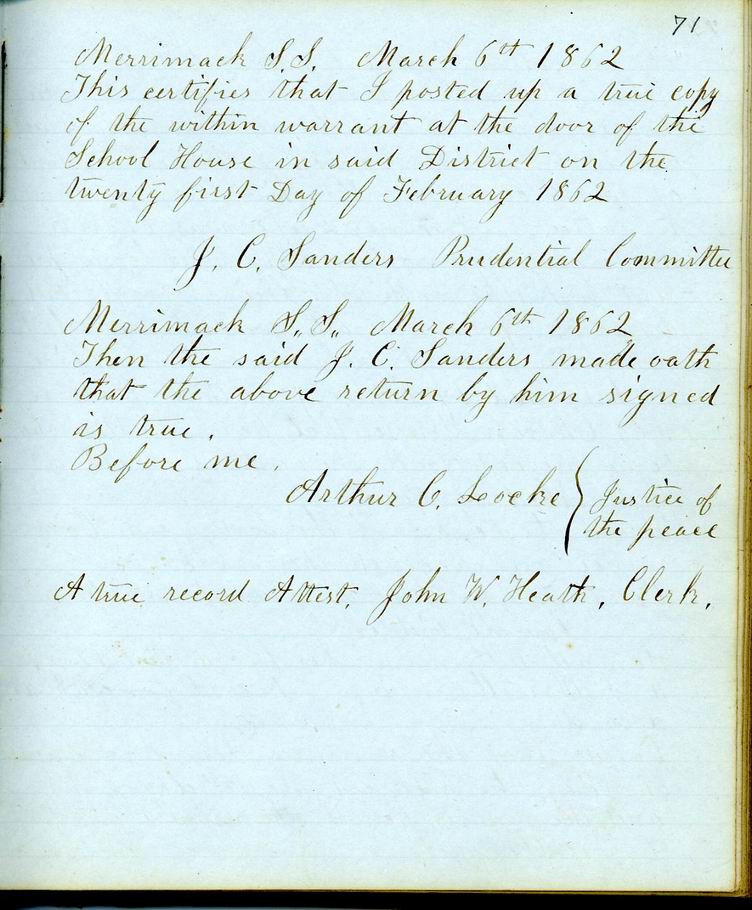 71
Merrimack S.S. March 6th 1862
This certifies that I posted up a true copy
of the within warrant at the door of the
School House in said District on the
twenty first Day of February 1862
J. C. Sanders Prudential Committee
Merrimack S,, S,, March 6th 1862
Then the said J. C. Sanders made oath
that the above return by him signed
is true.
Before me.
Arthur C. Locke } Justice of
the peace
A true record Attest. John W. Heath, Clerk.